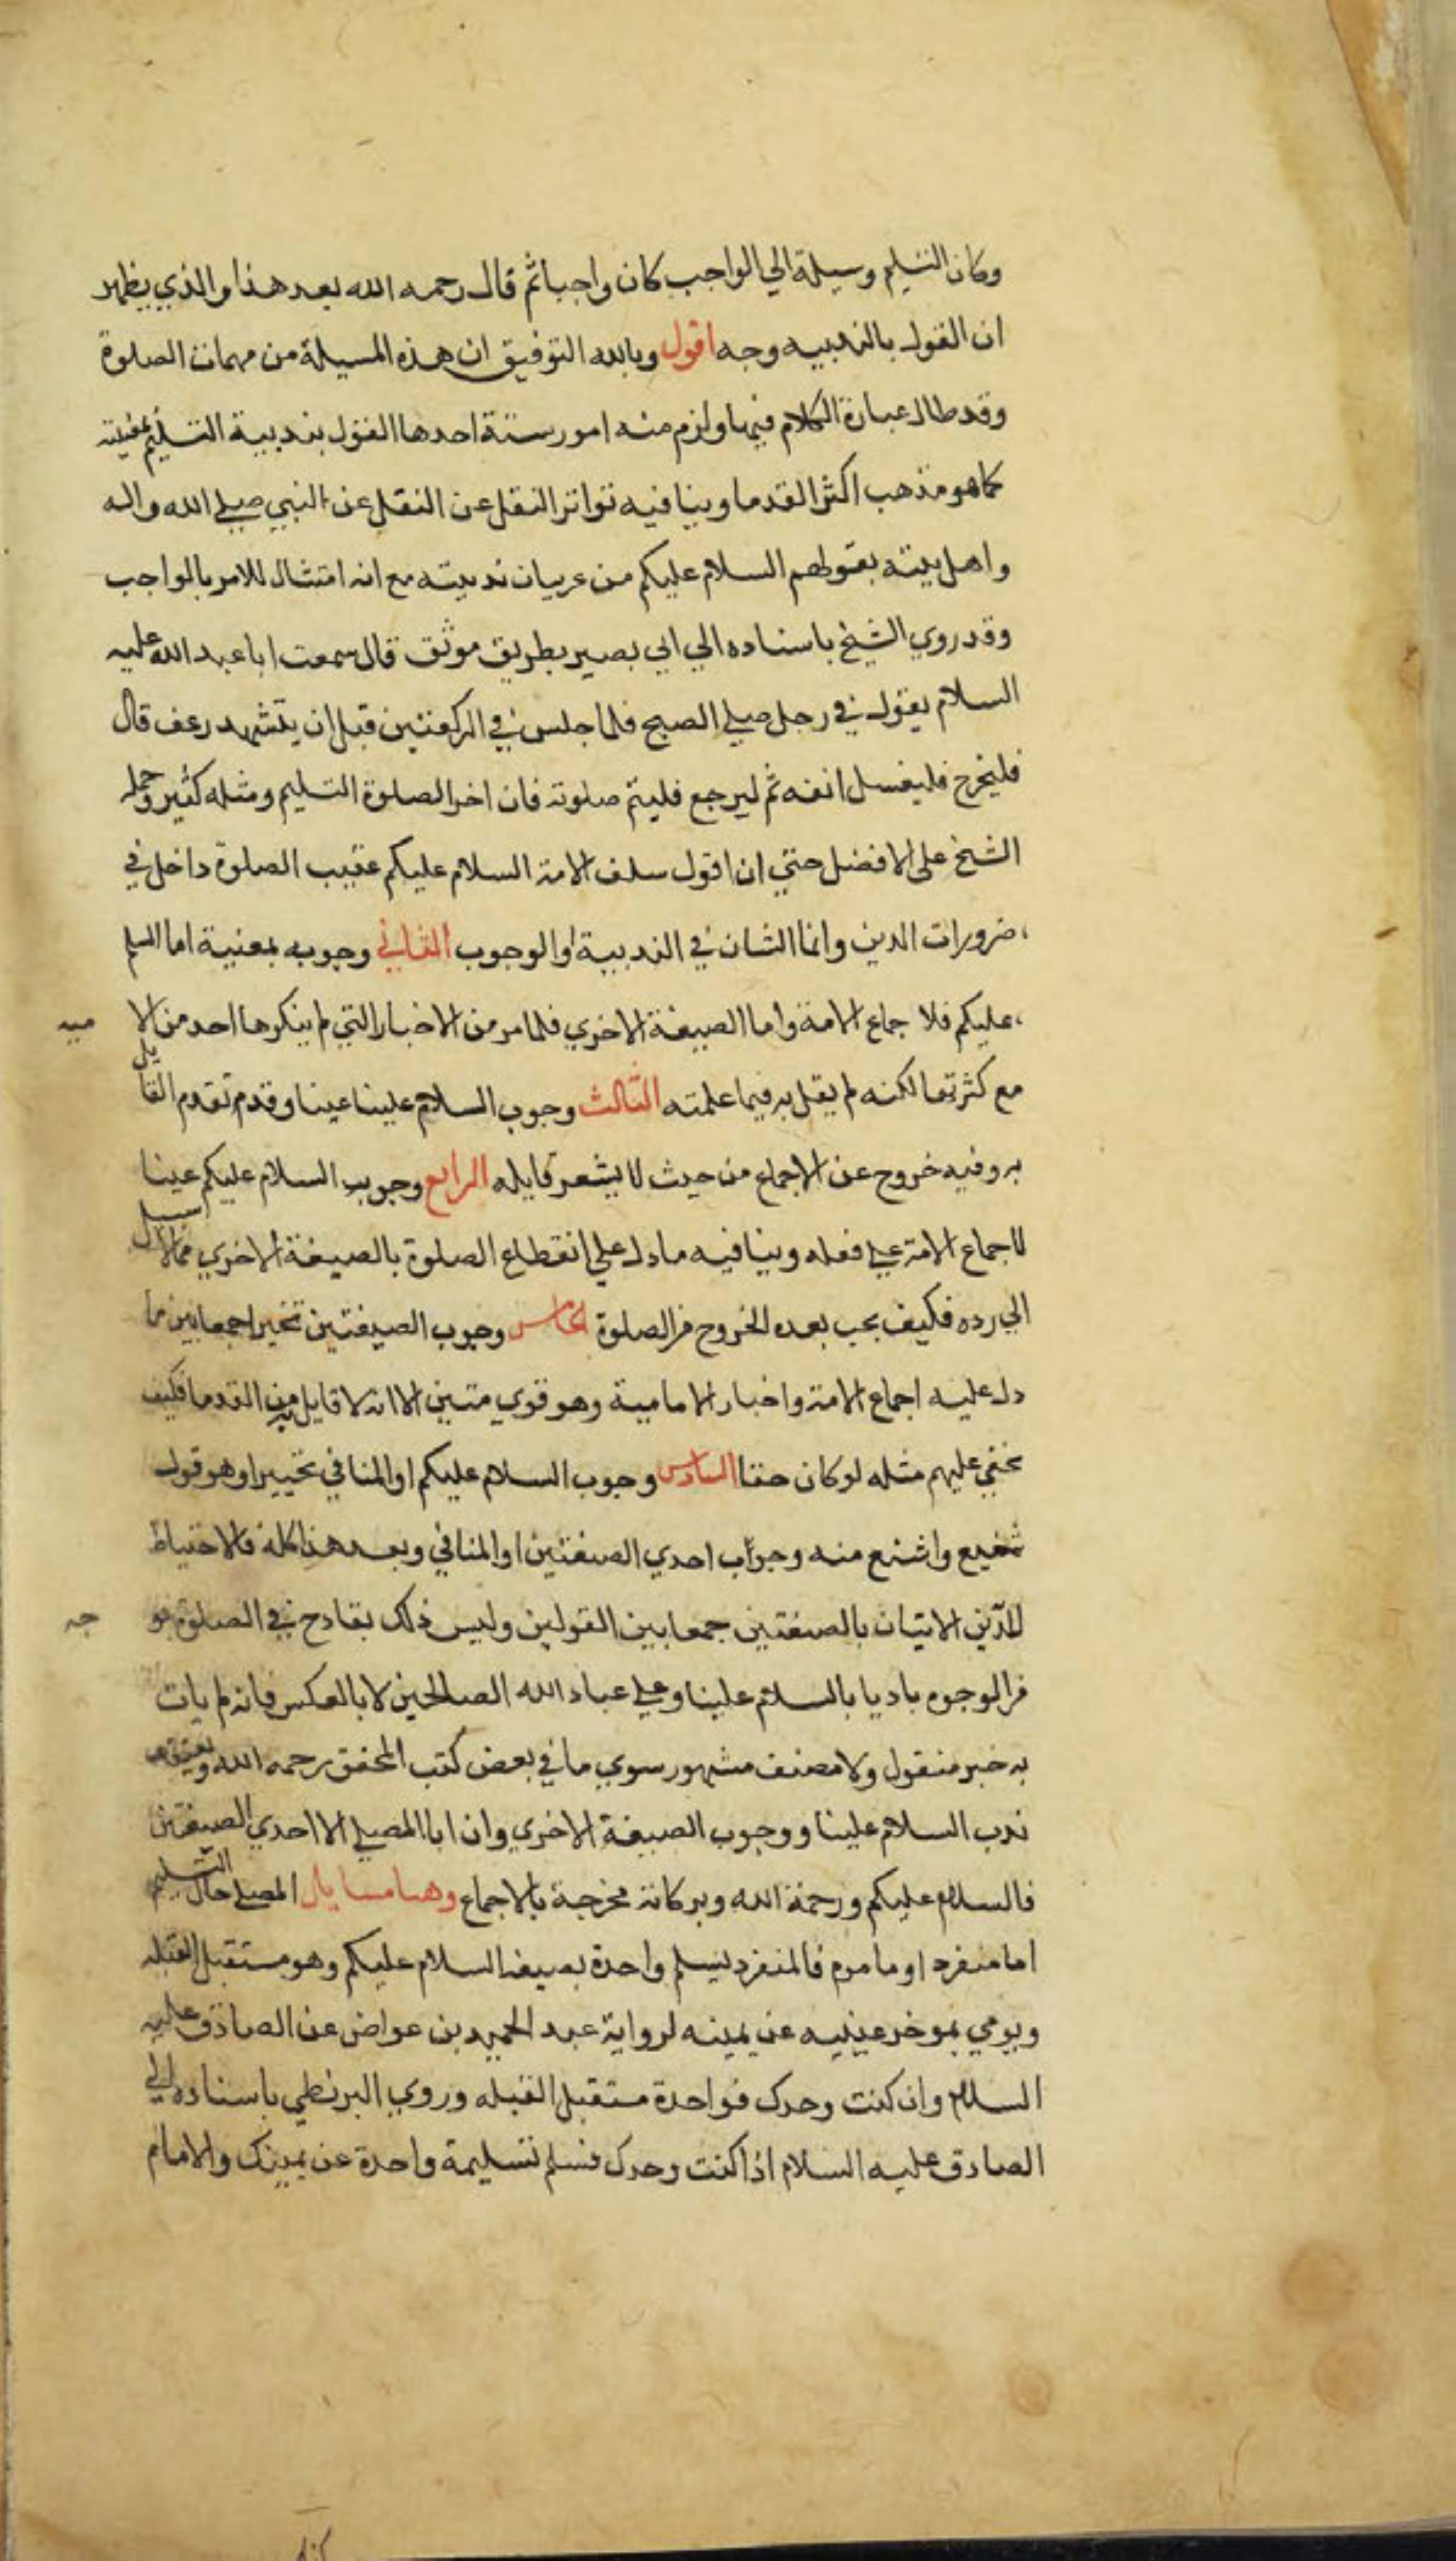 وكان التسليم وسيلة الي الواجب كان واجبا ثم قال رحمه الله بعد هذا والذي يظهر
ان القول بالندبيه وجه اقول وبالله التوفيق ان هذه المسيلة من مهمات الصلوة
وقد طال عبارة الكلام فيها ولزم منه امور ستة احدها القول بندبية التسليم بمعنيته
كما هو مذهب اكثر القدما وينافيه تواتر النقل عن النقل عن النبي صلي الله واله
واهل بيته بقولهم السلام عليكم من غربيان ندبيته مع انه امتثال للامر بالواجب
وقد روي الشيخ باسناده الي ابي بصير بطريق موثق قال سمعت ابا عبد الله عليه
السلام يقول في رجل صلي الصبح فلما جلس في الركعتين قبل ان يتشهد رعف قال
فليخرج فليغسل انفه ثم ليرجع فليتم صلوته فان اخر الصلوة التسليم ومثله كثير وحمله
الشيخ علي الافضل حتي ان اقول سلف الامة السلام عليكم عقيب الصلوة داخل في
ضرورات الدين وانما الشان في الندبية او الوجوب الثاني وجوبه بمعنية اما السلم
عليكم فلا جماع الامة واما الصيغة الاخري فلما مر من الاخبار التي لم ينكرها احد من الا ميه
مع كثرتها لكنه لم يقل به فيما علمته الثالث وجوب السلام علينا عينا وقدم تقدم القايل
به وفيه خروج عن الاجماع من حيث لا يشعر قايله الرابع وجوب السلام عليكم عينا
لاجماع الامة علي فعله وينافيه ما دل علي انقطاع الصلوة بالصيغة الاخري مما لا سبيل
الي رده فكيف يجب بعده الخروج من الصلوة الخامس وجوب الصيغتين تخيرا جمعا بين ما
دل عليه اجماع الامة واخبار الامامية وهو قوي متين الا انه لا قايل من القدما فكيف
يخفي عليهم مثله لو كان حقا السادس وجوب السلام عليكم او المنافي تخييرا وهو قول
شنيع واشنع منه وجواب احدي الصيغتين او المنافي وبعد هذا كله فالاحتياط
للدين الاتيان بالصيغتين جمعا بين القولين وليس ذلك بقادح في الصلوة بو جه
من الوجوه باديا بالسلام علينا وعلي عباد الله الصالحين لا بالعكس فانه لم يات
به خبر منقول ولا مصنف مشهور سوي ما في بعض كتب المحقق رحمه الله ويعتقد
ندب السلام علينا ووجوب الصيغة الاخري وان ابا المصلي الا احدي الصيغتين
فالسلام عليكم ورحمة الله وبركاته مخرجة بالاجماع وهنا مسايل المصلي حال التسليم
اما منفرد او ماموم فالمنفرد يسلم واحدة بصيغة السلام عليكم وهو مستقبل القبله
ويومي بموخر عينيه عن يمينه لرواية عبد الحميد بن عواض عن الصادق عليه
السلام وان كنت وحدك فواحدة مستقبل القبله وروي البزنطي باسناده الي
الصادق عليه السلام اذا كنت وحدك فسلم تسليمة واحدة عن يمينك والامام